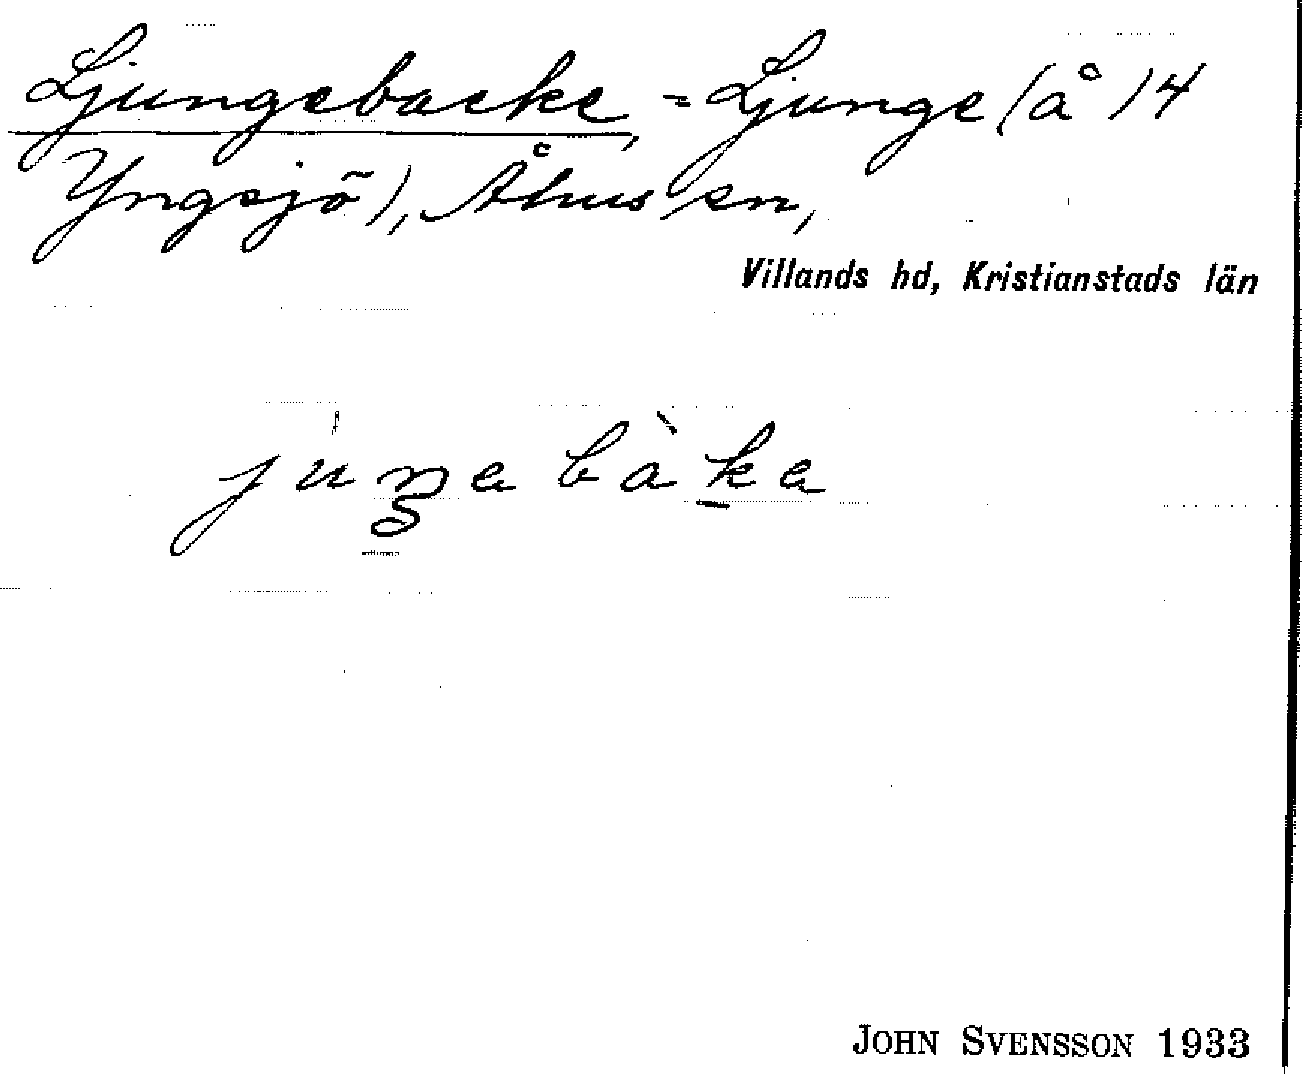 Ljungebacke, = Ljunge (å 14
Yngsjö), Åhus sn,
Villands hd, Kristianstads län
juŋabàka
JOHN SVENSSON 1933